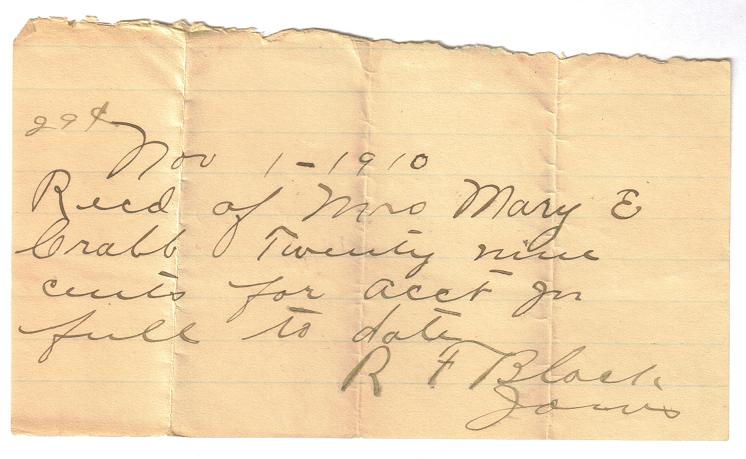 29¢
Nov 1-1910
Recd of Mrs Mary E
Crabb Twenty nine
cents for acct in
full to date
R F Black